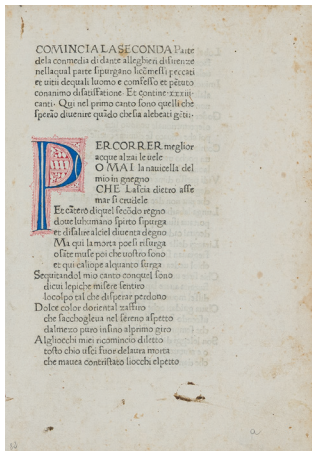 COMINCIA LA SECONDA Parte
dela conmedia di dante alleghieri di firenze
nellaqual parte sipurgano licōmessi peccati
et uitii dequali luomo e confesso et pētuto
conanimo disatisfatione. Et contine xxxiii
canti. Qui nel primo canto sono quelli che
sperāo diuenire quādo chesia alebeati gēti:·
PER CORRER meglior
acque alzai le uele
O MAI la nauicella del
mio in gnegno
CHE Lascia dietro asse
mar si crudele
Et cāterò di quel secōdo regno
doue luhumano spirto sipurga
et disalire alciel diuenta degno
Ma qui la morta poesi risurga
o sāte muse poi che uostro sono
et qui caliope alquanto surga
Sequitandol mio canto conquel sono
dicui lepiche misere sentiro
locolpo tal che disperar perdono
Dolce color doriental zaffiro
che sacchoglieua nel sereno aspetto
dalmezo puro infino alprimo giro
Agliocchi miei ricomincio diletto
tosto chio usci fuor delaura morta
che mauea contristato liocchi elpetto
a